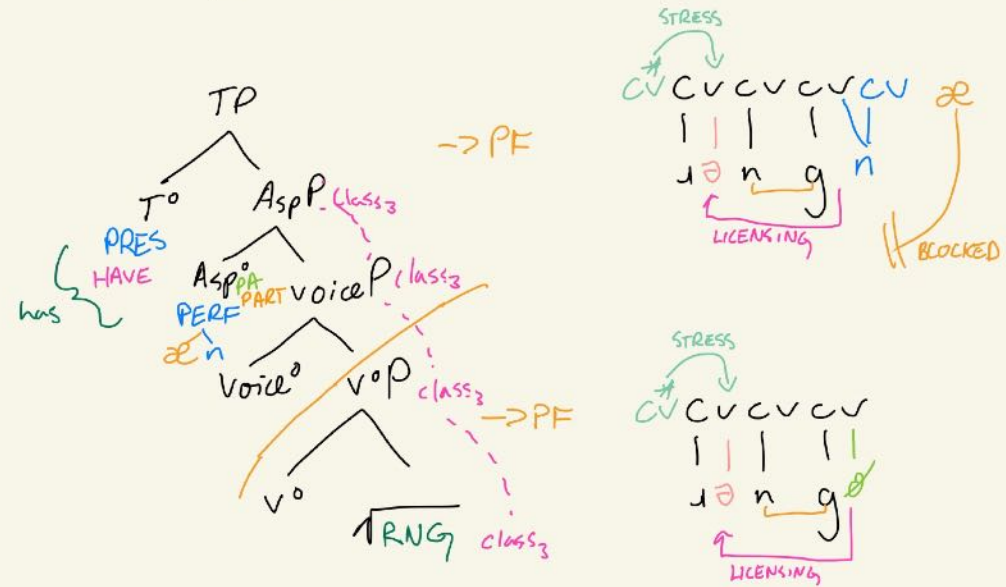 TP
T°
PRES
HAVE
has
AspP class₃
Asp° PA
PART
PERF
æ n
voiceP class₃
Voice°
v°P class₃
v°
√RNG class₃
-> PF
-> PF
STRESS
CV CVCVCV CV æ
ɹ ə n g n
LICENSING
BLOCKED
STRESS
CV CVCVCV
ɹ ə n g
LICENSING